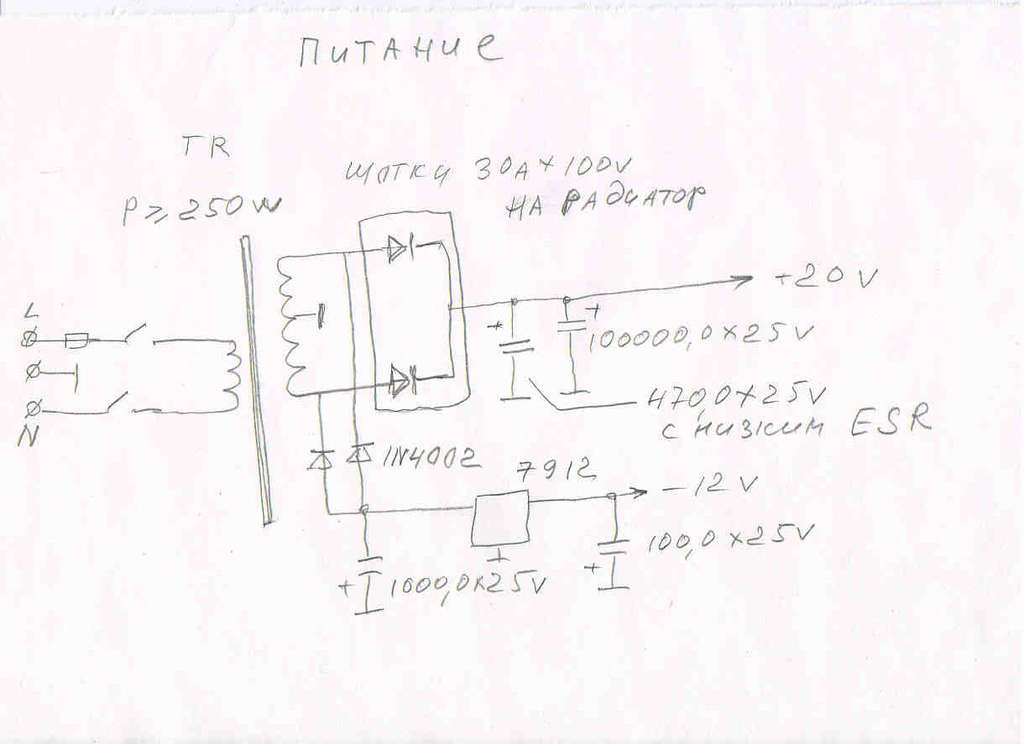 ПИТАНИЕ
TR
P ≥ 250W
ШОТКИ 30A × 100V
НА РАДИАТОР
L
N
+20V
+
+
100000,0 × 25V
470,0 × 25V
с низким ESR
1N4002
7912
-12V
100,0 × 25V
+
+
1000,0 × 25V